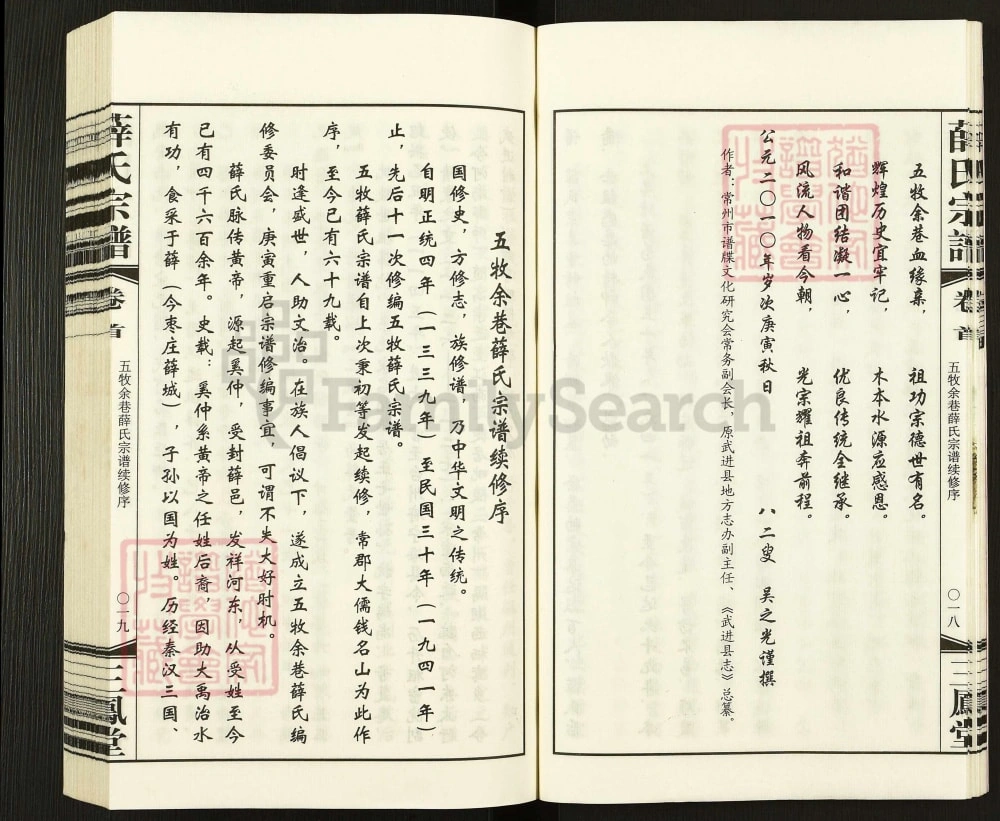 薛氏宗谱
卷首
五牧余巷薛氏宗谱续修序
〇一八
三鳳堂
五牧余巷血缘亲，　祖功宗德世有名。
辉煌历史宜牢记，　木本水源应感恩。
和谐团结凝一心，　优良传统全继承。
风流人物看今朝，　光宗耀祖奔前程。
公元二〇一〇年岁次庚寅秋日　八二叟　吴之光谨撰
作者：常州市谱牒文化研究会常务副会长，原武进县地方志办副主任、《武进县志》总纂。
五牧余巷薛氏宗谱续修序
国修史，方修志，族修谱，乃中华文明之传统。
自明正统四年（一三三九年）至民国三十年（一一九四一年）
止，先后十一次修编五牧薛氏宗谱。
五牧薛氏宗谱自上次秉初等发起续修，常郡大儒钱名山为此作
序，至今已有六十九载。
时逢盛世，人助文治。在族人倡议下，遂成立五牧余巷薛氏编
修委员会，庚寅重启宗谱修编事宜，可谓不失大好时机。
薛氏脉传黄帝，源起奚仲，受封薛邑，发祥河东，从受姓至今
已有四千六百余年。史载：奚仲系黄帝之任姓后裔，因助大禹治水
有功，食采于薛（今枣庄薛城），子孙以国为姓。历经秦汉三国、
薛氏宗谱
卷首
五牧余巷薛氏宗谱续修序
〇一九
三鳳堂
FamilySearch